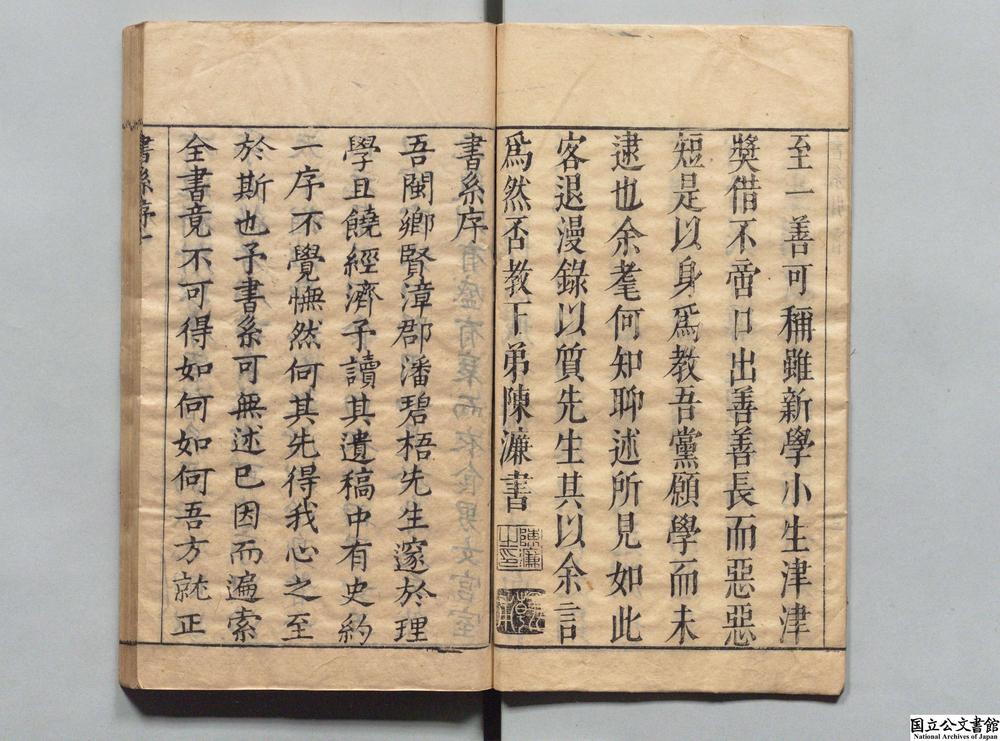 至一善可稱雖新學小生津津
奬借不啻口出善善長而惡惡
短是以身爲教吾黨願學而未
逮也余耄何知聊述所見如此
客退漫錄以質先生其以余言
爲然否教下弟陳濂書
陳濂之印
書系序
吾閩鄉賢漳郡潘碧梧先生邃於理
學且饒經濟予讀其遺稿中有史約
一序不覺憮然何其先得我心之至
於斯也予書系可無述已因而遍索
全書竟不可得如何如何吾方就正
書系序一
国立公文書館
National Archives of Japan